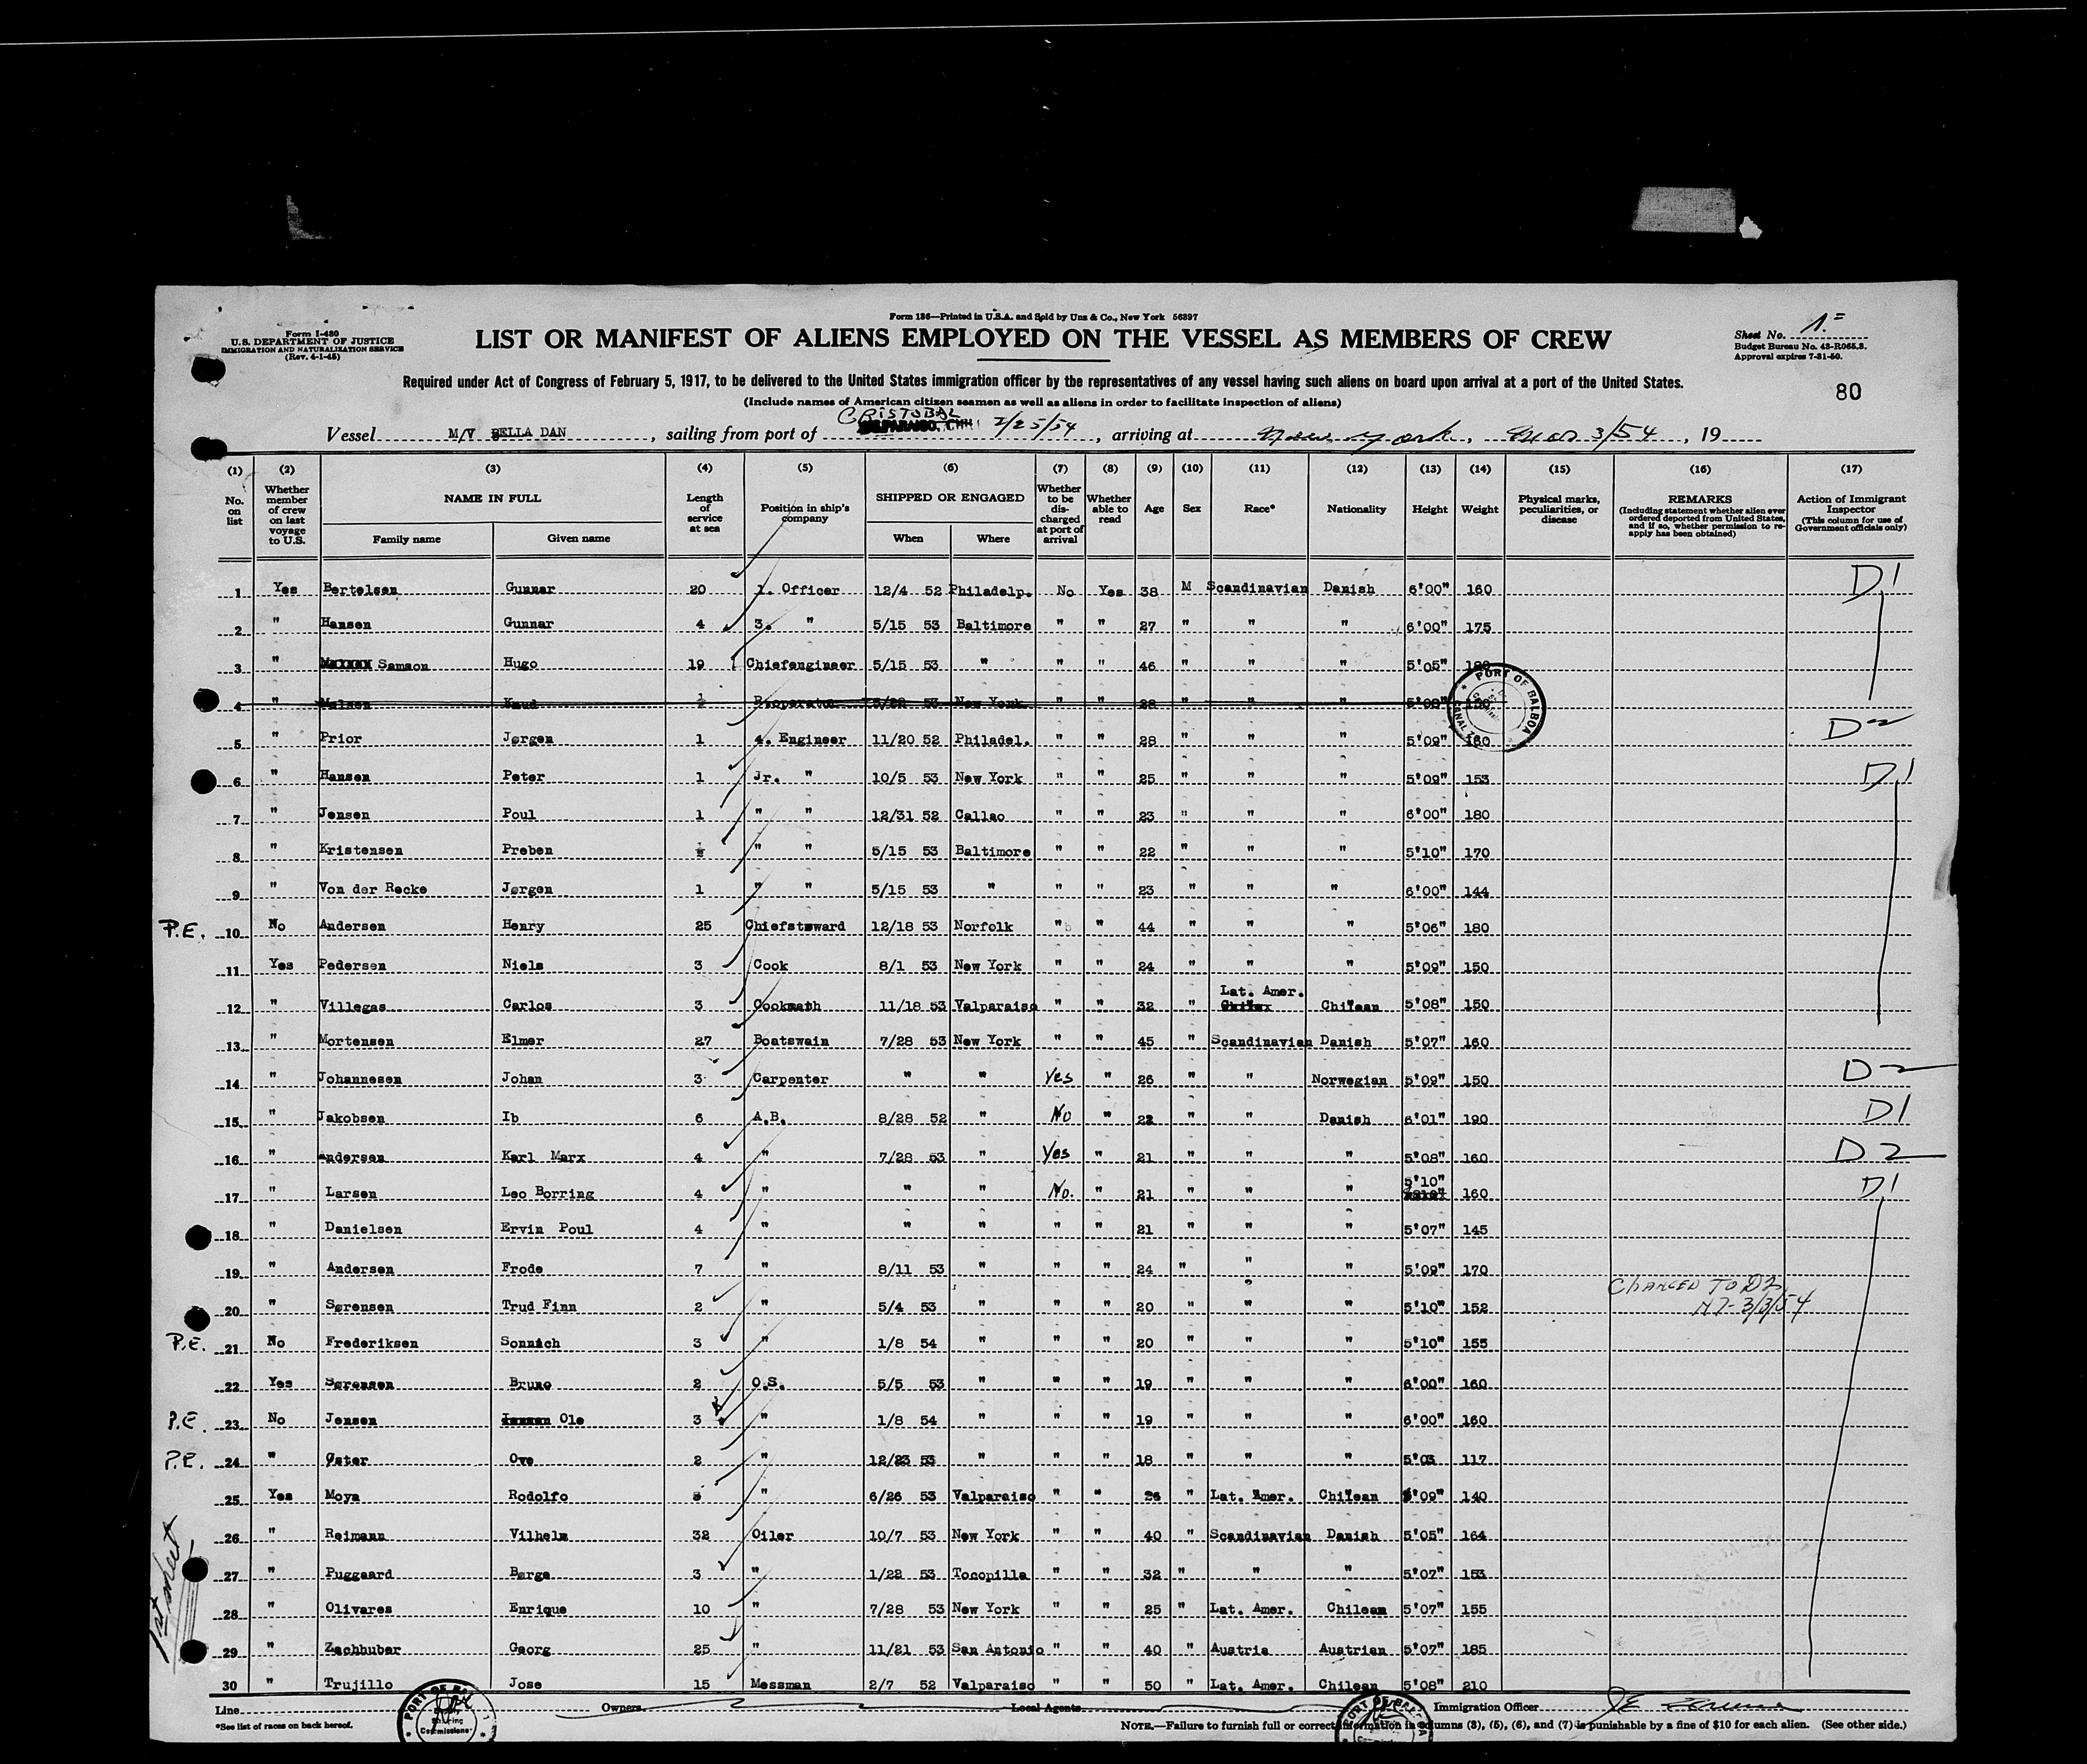 Form 186—Printed in U.S.A. and Sold by Unz & Co., New York 56397
Form I-480
U.S. DEPARTMENT OF JUSTICE
IMMIGRATION AND NATURALIZATION SERVICE
(Rev. 4-1-45)
LIST OR MANIFEST OF ALIENS EMPLOYED ON THE VESSEL AS MEMBERS OF CREW
Sheet No. 1.=
Budget Bureau No. 43-R065.3.
Approval expires 7-31-50.
Required under Act of Congress of February 5, 1917, to be delivered to the United States immigration officer by the representatives of any vessel having such aliens on board upon arrival at a port of the United States.
80
(Include names of American citizen seamen as well as aliens in order to facilitate inspection of aliens)
CRISTOBAL
Vessel M/V BELLA DAN, sailing from port of 2/25/54, arriving at New York, Mar 3/54, 19
(1) (2) (3) (4) (5) (6) (7) (8) (9) (10) (11) (12) (13) (14) (15) (16) (17)
No. on list Whether member of crew on last voyage to U.S. NAME IN FULL Family name Given name Length of service at sea Position in ship's company SHIPPED OR ENGAGED When Where Whether to be discharged at port of arrival Whether able to read Age Sex Race* Nationality Height Weight Physical marks, peculiarities, or disease REMARKS (Including statement whether alien ever ordered deported from United States, and if so, whether permission to reapply has been obtained) Action of Immigrant Inspector (This column for use of Government officials only)
1 Yes Bertelsen Gunnar 20 1. Officer 12/4 52 Philadelp. No Yes 38 M Scandinavian Danish 6'00" 160 D1
2 " Hansen Gunnar 4 3. " 5/15 53 Baltimore " " 27 " " " 6'00" 175
3 " Samson Hugo 19 Chiefengineer 5/15 53 " " " 46 " " " 5'05"
4 " Knud 53 New York " " 28 " " " 5'08" 150
5 " Prior Jørgen 1 4. Engineer 11/20 52 Philadel. " " 28 " " " 5'09" 160 D2
6 " Hansen Peter 1 Jr. " 10/5 53 New York " " 25 " " " 5'09" 153 D1
7 " Jensen Poul 1 " " 12/31 52 Callao " " 23 " " " 6'00" 180
8 " Kristensen Preben " " 5/15 53 Baltimore " " 22 " " " 5'10" 170
9 " Von der Recke Jørgen 1 " " 5/15 53 " " " 23 " " " 6'00" 144
P.E. 10 No Andersen Henry 25 Chiefsteward 12/18 53 Norfolk " " 44 " " " 5'06" 180
11 Yes Pedersen Niels 3 Cook 8/1 53 New York " " 24 " " " 5'09" 150
12 " Villegas Carlos 3 Cooksmath 11/18 53 Valparaiso " " 32 " Lat. Amer. Chilean 5'08" 150
13 " Mortensen Elmer 27 Boatswain 7/28 53 New York " " 45 " Scandinavian Danish 5'07" 160
14 " Johannesen Johan 3 Carpenter " " Yes " 26 " " Norwegian 5'09" 150 D2
15 " Jakobsen Ib 6 A.B. 8/28 52 " No " 22 " " Danish 6'01" 190 D1
16 " Andersen Karl Marx 4 " 7/28 53 " Yes " 21 " " " 5'08" 160 D2
17 " Larsen Leo Borring 4 " " " No. " 21 " " " 5'10" 160 D1
18 " Danielsen Ervin Poul 4 " " " " " 21 " " " 5'07" 145
19 " Andersen Frode 7 " 8/11 53 " " " 24 " " " 5'09" 170
20 " Sørensen Trud Finn 2 " 5/4 53 " " " 20 " " " 5'10" 152 CHANGED TO D2 NY-3/3/54
P.E. 21 No Frederiksen Sonnich 3 " 1/8 54 " " " 20 " " " 5'10" 155
22 Yes Sørensen Bruno 2 O.S. 5/5 53 " " " 19 " " " 6'00" 160
P.E 23 No Jensen Ole 3 " 1/8 54 " " " 19 " " " 6'00" 160
P.E. 24 " Øster Ove 2 " 12/23 53 " " " 18 " " " 5'03 117
25 Yes Moya Rodolfo " 6/26 53 Valparaiso " " 26 " Lat. Amer. Chilean 5'09" 140
26 " Reimann Vilhelm 32 Oiler 10/7 53 New York " " 40 " Scandinavian Danish 5'05" 164
27 " Puggaard Børge 3 " 1/22 53 Tocopilla " " 32 " " " 5'07" 153
28 " Olivares Enrique 10 " 7/28 53 New York " " 25 " Lat. Amer. Chilean 5'07" 155
29 " Zachhuber Georg 25 " 11/21 53 San Antonio " " 40 " Austria Austrian 5'07" 185
30 " Trujillo Jose 15 Messman 2/7 52 Valparaiso " " 50 " Lat. Amer. Chilean 5'08" 210
1st sheet
PORT OF BALBOA
CANAL Z
Line Owners Local Agents Immigration Officer
*See list of races on back hereof.
NOTE.—Failure to furnish full or correct information in columns (3), (5), (6), and (7) is punishable by a fine of $10 for each alien. (See other side.)